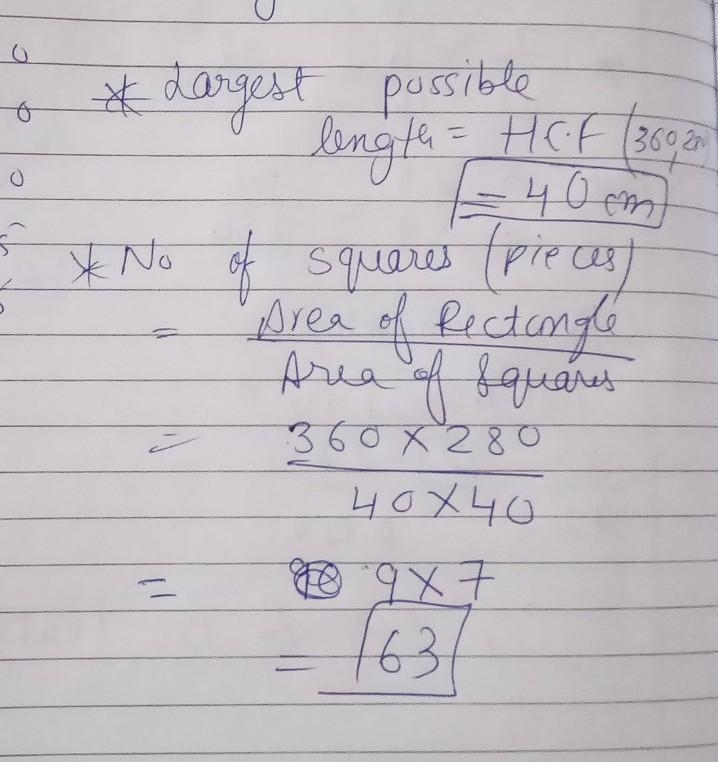 * Largest possible
length = H.C.F (360,2
= 40 cm
* No of squares (pieces)
= Area of Rectangle
Area of squares
= 360 × 280
40 × 40
= 9 × 7
= 63